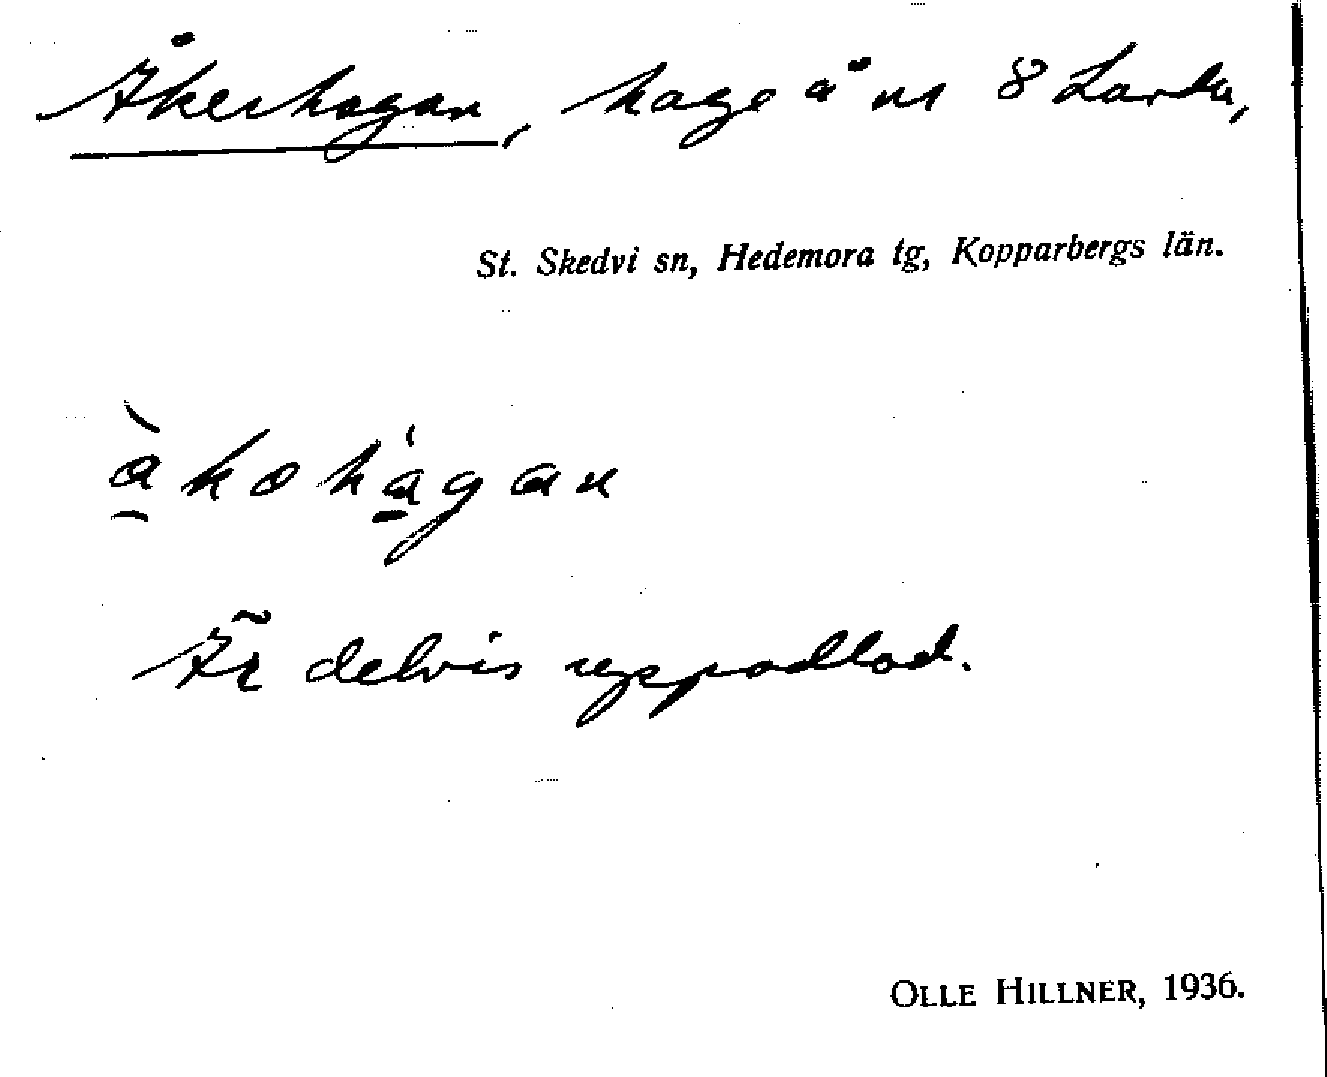 Åkerhagan, hage å nr 8 Landa,
St. Skedvi sn, Hedemora tg, Kopparbergs län.
àkohágan
Är delvis uppodlad.
OLLE HILLNER, 1936.